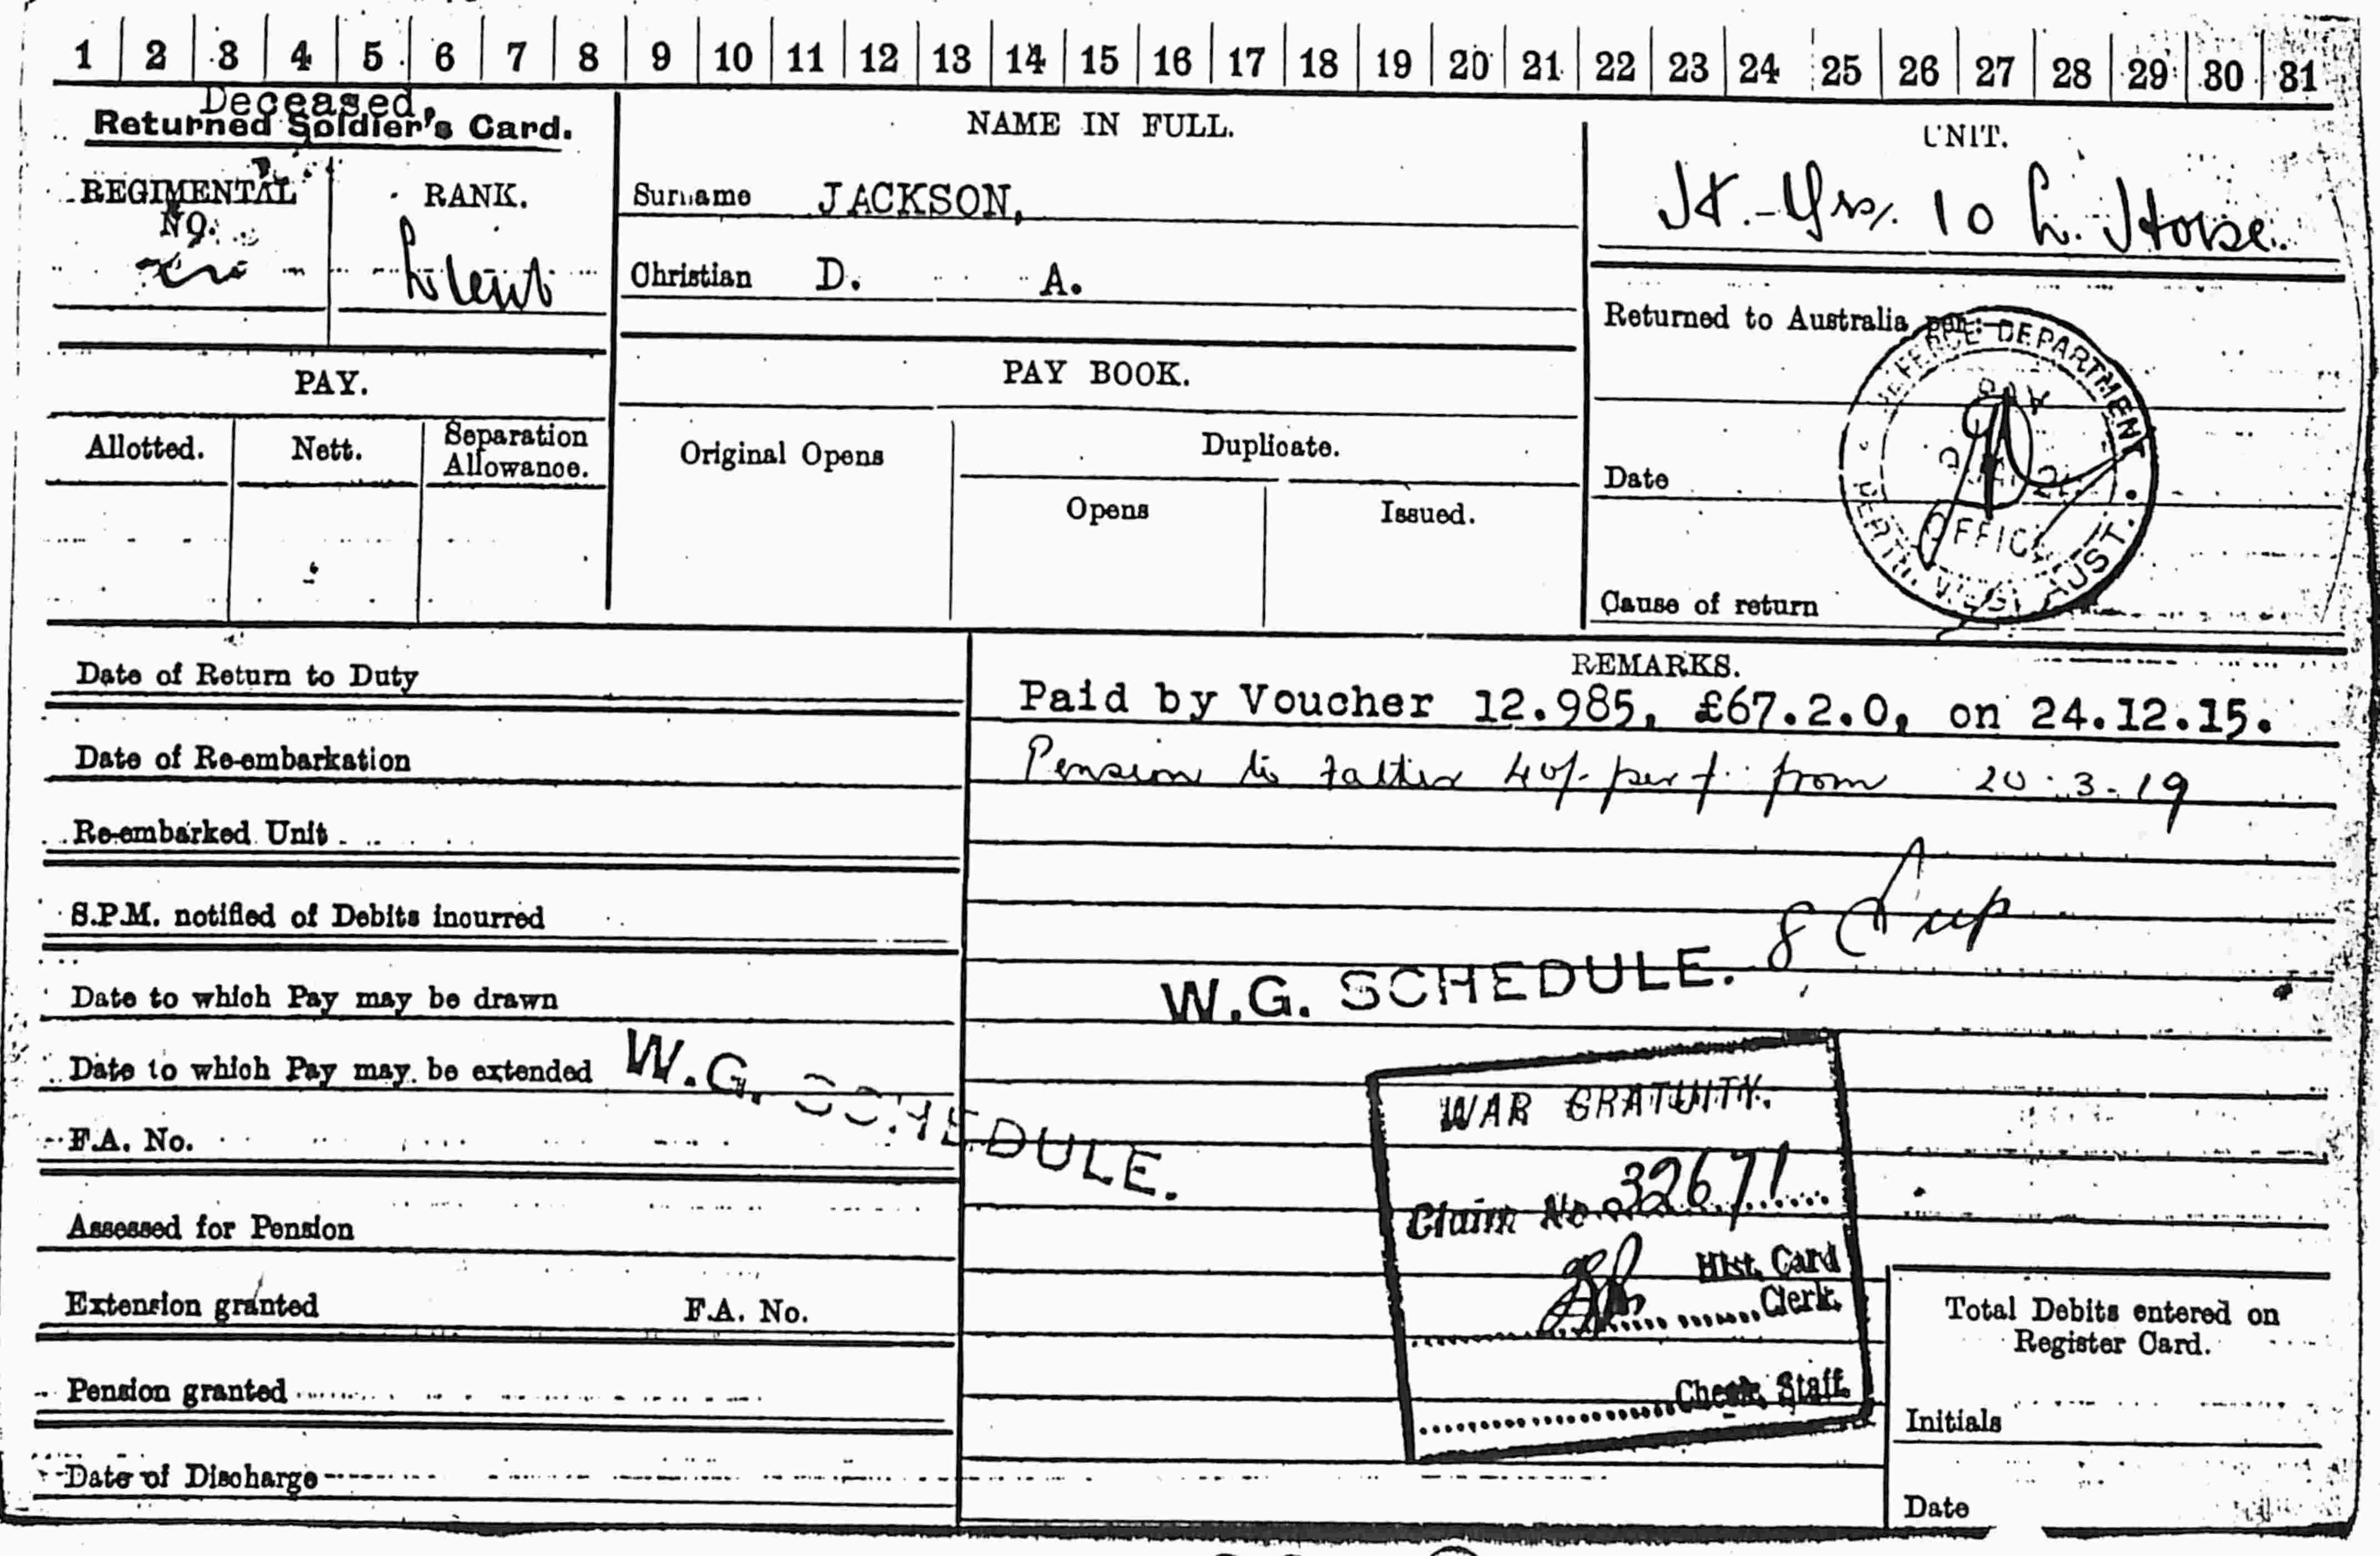 1 2 3 4 5 6 7 8 9 10 11 12 13 14 15 16 17 18 19 20 21 22 23 24 25 26 27 28 29 30 31
Deceased,
Returned Soldier's Card.
REGIMENTAL
NO.
RANK.
Lieut
NAME IN FULL.
Surname JACKSON,
Christian D. A.
UNIT.
10 L. Horse.
Returned to Australia per:
DEFENCE DEPARTMENT
PAY
OFFICE
PERTH. W. AUST.
Date
Cause of return
PAY.
Allotted.
Nett.
Separation
Allowance.
PAY BOOK.
Original Opens
Duplicate.
Opens
Issued.
Date of Return to Duty
Date of Re-embarkation
Re-embarked Unit
S.P.M. notified of Debits incurred
Date to which Pay may be drawn
Date to which Pay may be extended
W.G. SCHEDULE.
F.A. No.
Assessed for Pension
Extension granted F.A. No.
Pension granted
Date of Discharge
REMARKS.
Paid by Voucher 12.985, £67.2.0, on 24.12.15.
Pension to father 40/- per f. from 20.3.19
W.G. SCHEDULE.
WAR GRATUITY.
Claim No 32671
Hist. Card
Clerk.
Check. Staff.
Total Debits entered on
Register Card.
Initials
Date